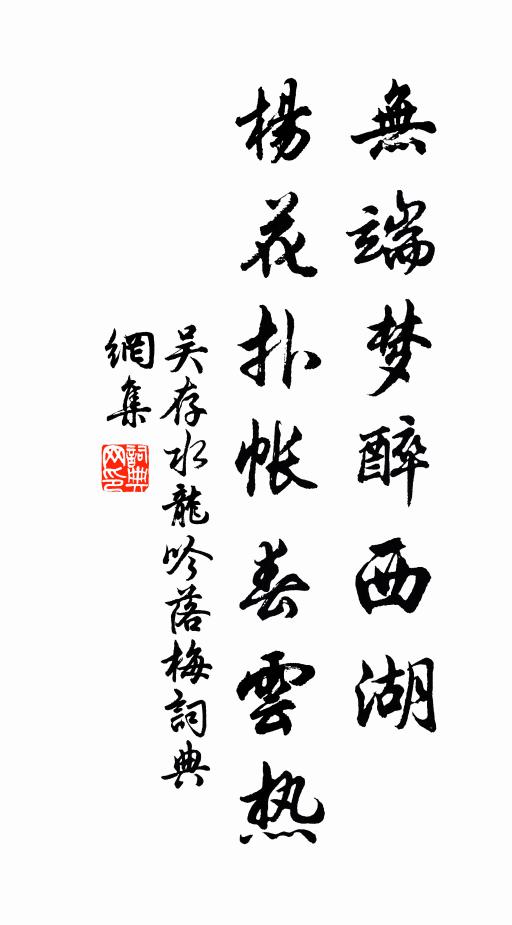 無端梦醉西湖
楊花扑帐春雲热
吴存水龍吟落梅詞典
網集
詞典网印